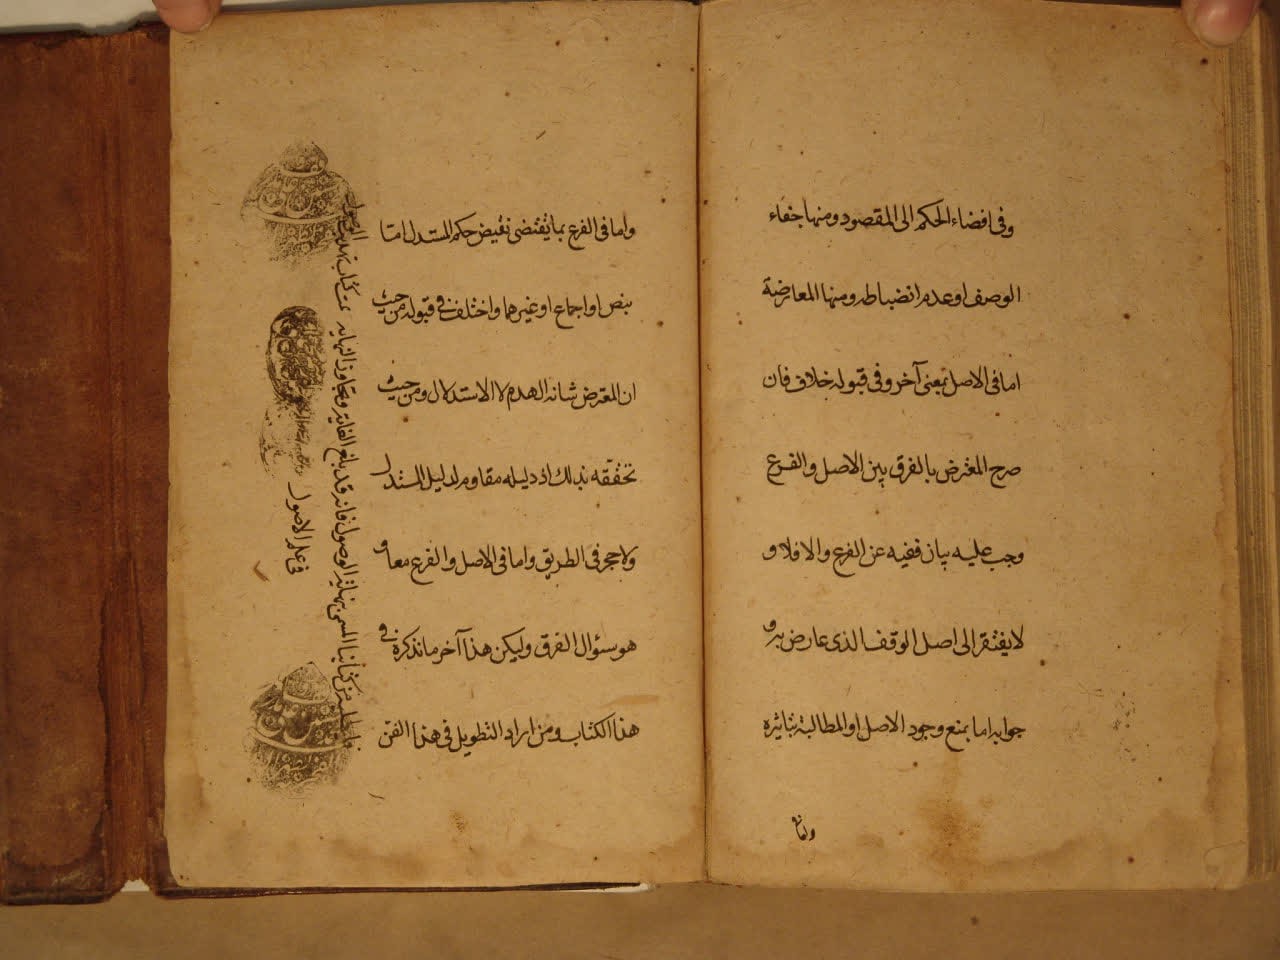 وفى افضاء الحكم الى المقصود ومنها خفاء
الوصف او عدم انضباطه ومنها المعارضة
اما فى الاصل بمعنى آخر وفى قبوله خلاف فان
صرح المعترض بالفرق بين الاصل والفرع
وجب عليه بيان نفيه عن الفرع والا فلا و
لا يفتقر الى اصل الوقف الذى عارض به و
جوابه اما بمنع وجود الاصل او المطالبة بتاثيره
واما فى
واما فى الفرع بما يقتضى نقيض حكم المستدل اما
بنص او اجماع او غيرهما واختلف فى قبوله من حيث
ان المعترض شانه الهدم لا الاستدلال ومن حيث
تحققه بذلك اذ دليله مقاوم لدليل المستدل
ولا حجر فى الطريق واما فى الاصل والفرع معا و
هو سؤال الفرق وليكن هذا آخر ما نذكره فى
هذا الكتاب ومن اراد التطويل فى هذا الفن
فليطلبه من كتابنا المسمى بنهاية الوصول فانه قد بلغ الغاية وتجاوز النهاية تمت كتاب تهذيب الوصول
فى علم الاصول